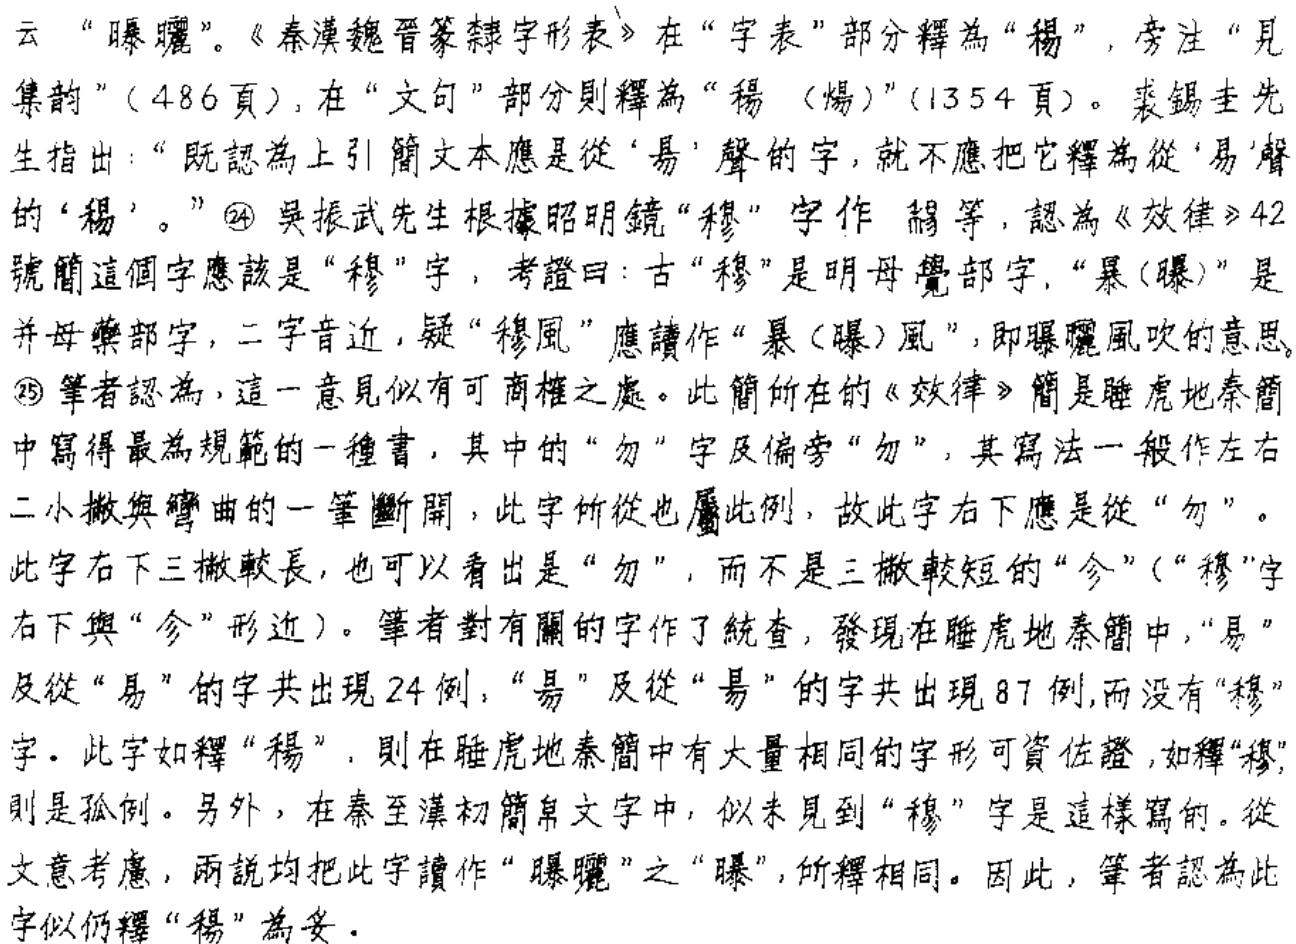 云“曝曬”。《秦漢魏晉篆隸字形表》在“字表”部分釋為“楊”，旁注“見
集韵”（486頁），在“文句”部分則釋為“禓（煬）”（1354頁）。裘錫圭先
生指出：“既認為上引簡文本應是從‘昜’聲的字，就不應把它釋為從‘易’聲
的‘䅘’。”㉔ 吳振武先生根據昭明鏡“穆”字作 等，認為《效律》42
號簡這個字應該是“穆”字，考證曰：古“穆”是明母覺部字，“暴（曝）”是
并母藥部字，二字音近，疑“穆風”應讀作“暴（曝）風”，即曝曬風吹的意思。
㉕ 筆者認為，這一意見似有可商榷之處。此簡所在的《效律》簡是睡虎地秦簡
中寫得最為規範的一種書，其中的“勿”字及偏旁“勿”，其寫法一般作左右
二小撇與彎曲的一筆斷開，此字所從也屬此例，故此字右下應是從“勿”。
此字右下三撇較長，也可以看出是“勿”，而不是三撇較短的“㐱”（“穆”字
右下與“㐱”形近）。筆者對有關的字作了統查，發現在睡虎地秦簡中，“易”
及從“易”的字共出現24例，“昜”及從“昜”的字共出現87例，而没有“穆”
字。此字如釋“䅘”，則在睡虎地秦簡中有大量相同的字形可資佐證，如釋“穆”，
則是孤例。另外，在秦至漢初簡帛文字中，似未見到“穆”字是這樣寫的。從
文意考慮，兩説均把此字讀作“曝曬”之“曝”，所釋相同。因此，筆者認為此
字似仍釋“䅘”為妥。